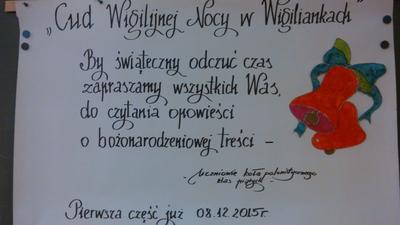 "Cud Wigilijnej Nocy w Wigiliankach"
By świąteczny odczuć czas
zapraszamy wszystkich Was,
do czytania opowieści
o bożonarodzeniowej treści –
- uczniowie koła polonistycznego
klas piątych -
Pierwsza część już 08.12.2015r.